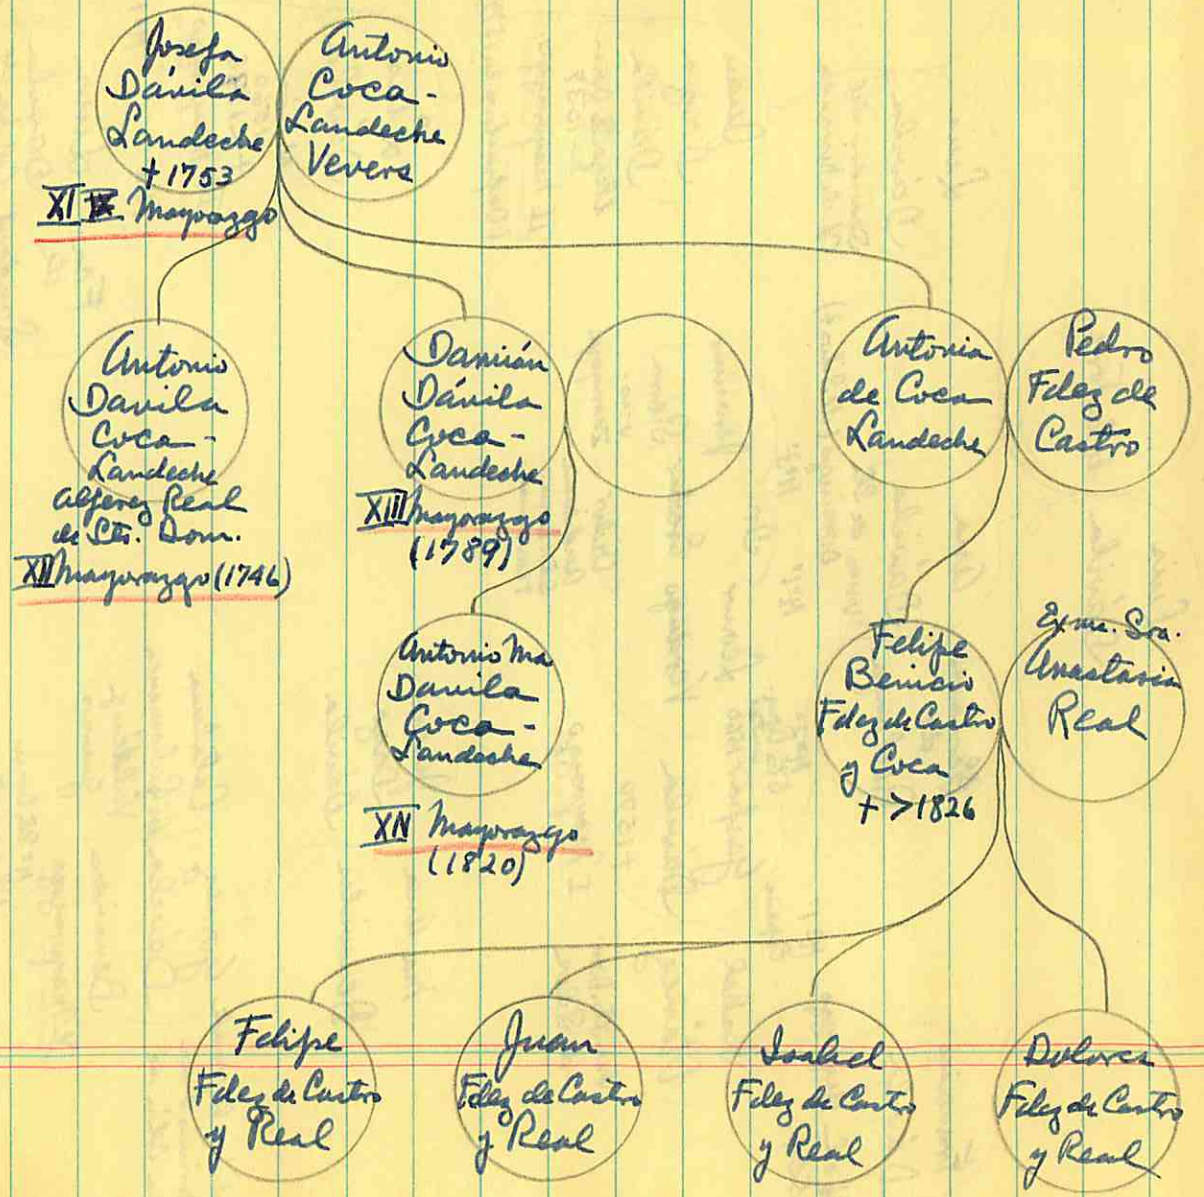 Josefa
Dávila
Landeche
+1753
XI Mayorazgo
Antonio
Coca-
Landeche
Vevers
Antonio
Davila
Coca-
Landeche
Alferez Real
de Sto. Dom.
XII Mayorazgo (1746)
Damián
Dávila
Coca-
Landeche
XIII Mayorazgo
(1789)
Antonia
de Coca
Landeche
Pedro
Fdez de
Castro
Antonio Ma
Davila
Coca-
Landeche
XIV Mayorazgo
(1820)
Felipe
Benicio
Fdez de Castro
y Coca
+ >1826
Exma. Sra.
Anastasia
Real
Felipe
Fdez de Castro
y Real
Juan
Fdez de Castro
y Real
Isabel
Fdez de Castro
y Real
Dolores
Fdez de Castro
y Real